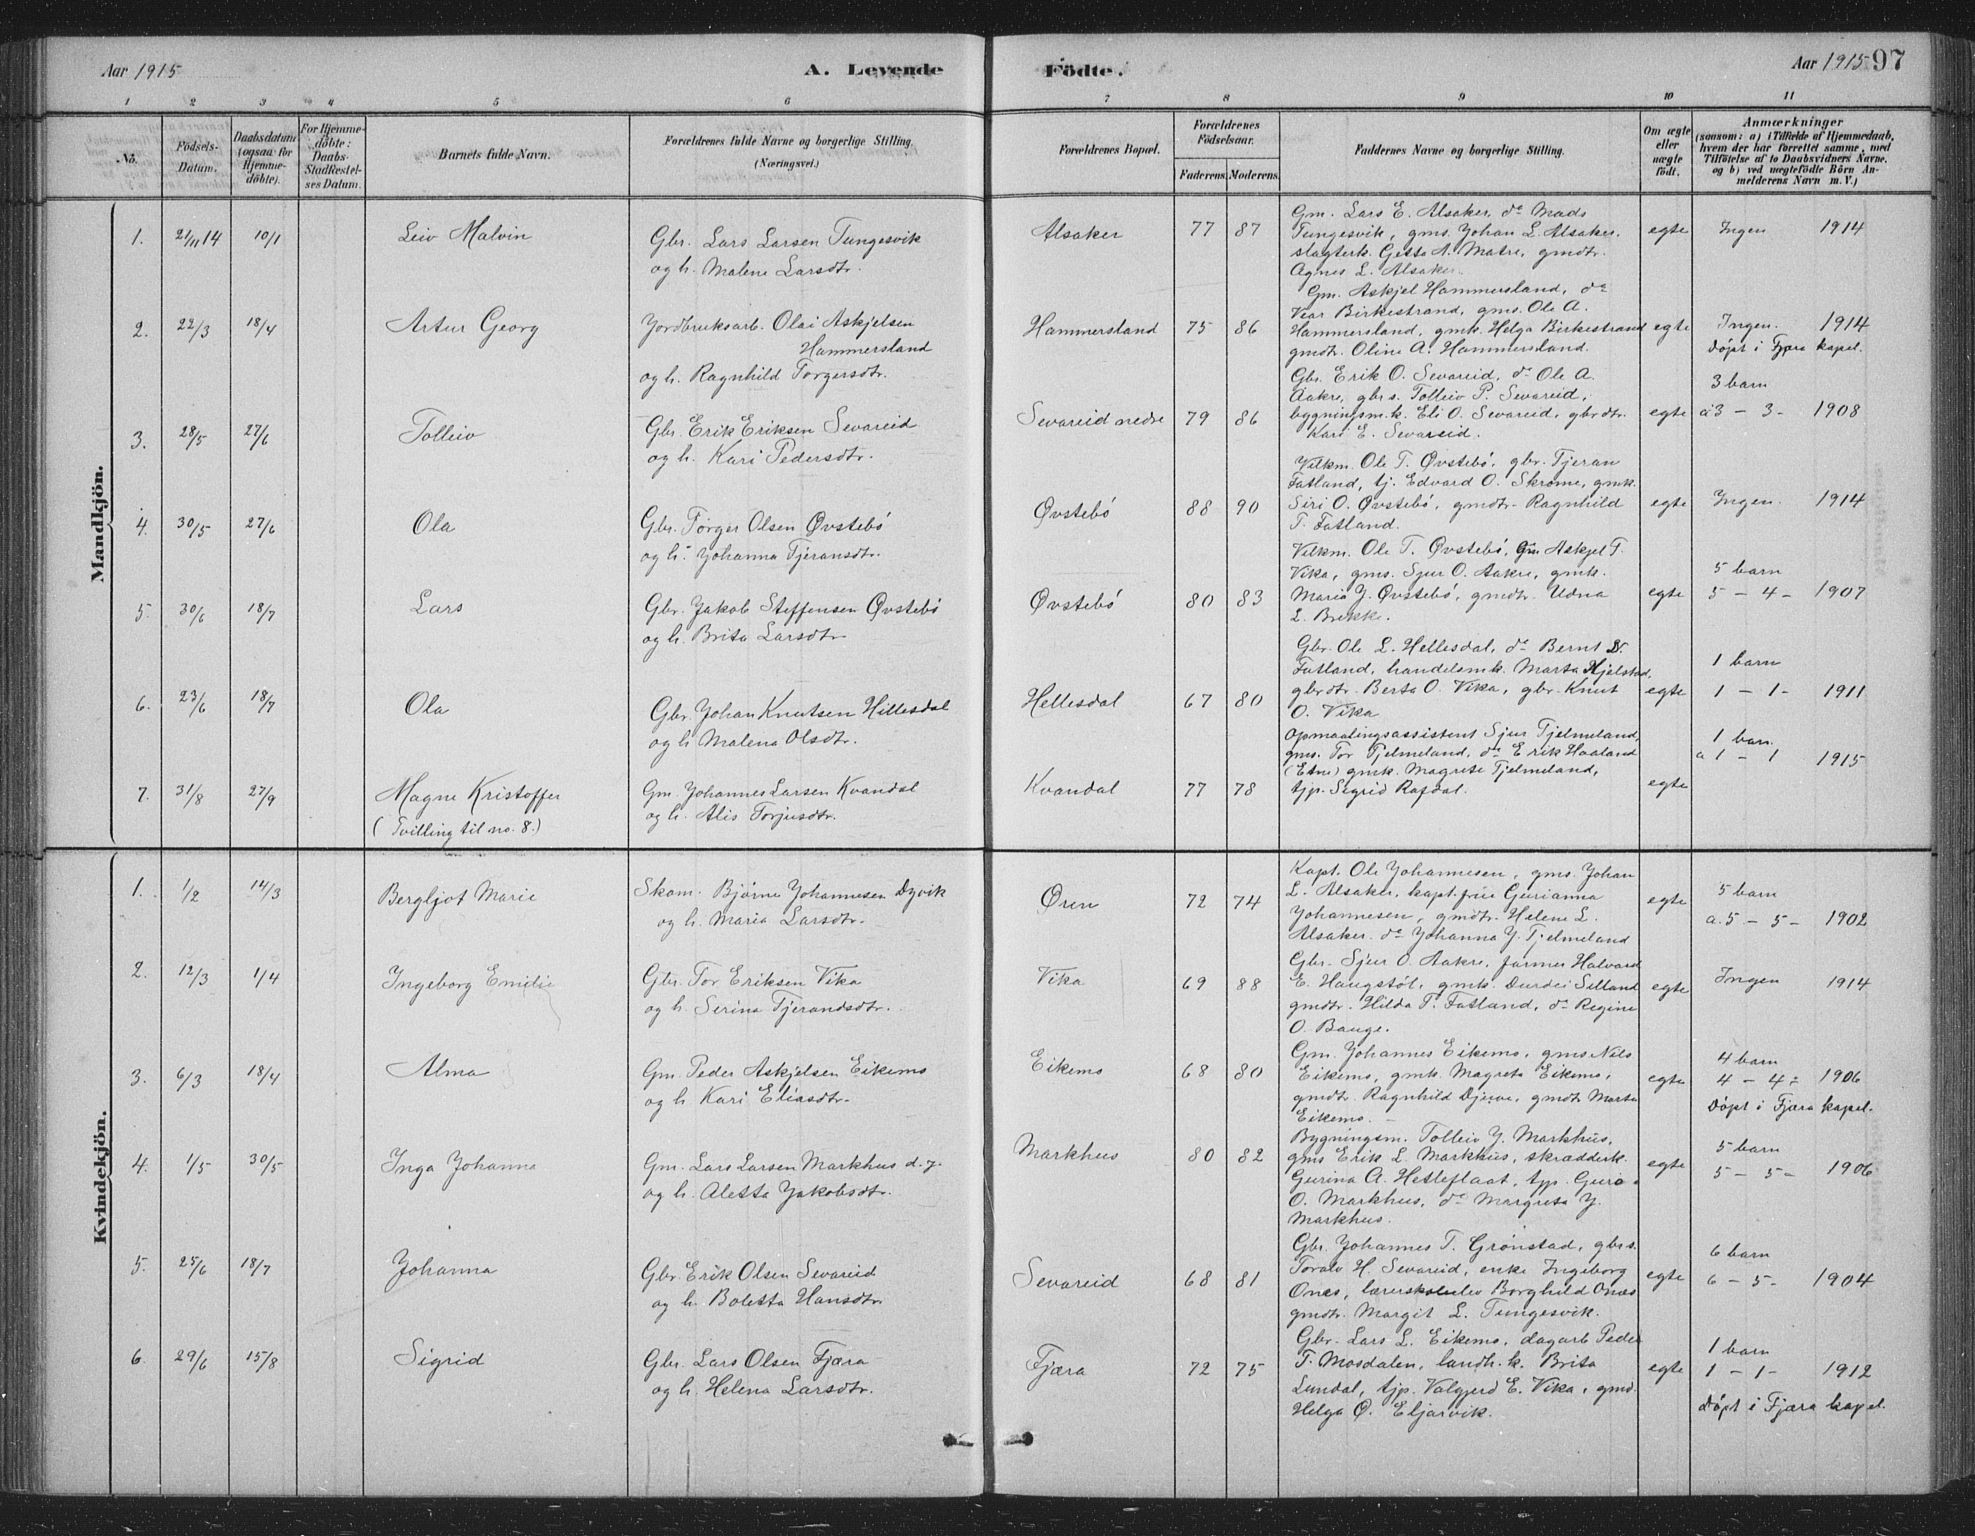 Aar 1915
A. Levende
Födte.
Aar 1915 97
1 2 3 4 5 6 7 8 9 10 11
No.
Födsels-
Datum.
Daabsdatum
(ogsaa for
Hjemme-
döbte).
For Hjemme-
döbte:
Daabs-
Stadfæstel-
ses Datum.
Barnets fulde Navn.
Forældrenes fulde Navne og borgerlige Stilling.
(Næringsvei.)
Forældrenes Bopæl.
Forældrenes
Födselsaar.
Faderens. Moderens.
Faddernes Navne og borgerlige Stilling.
Om ægte
eller
uægte
födt.
Anmærkninger
(saasom: a) i Tilfælde af Hjemmedaab,
hvem der har forrettet samme, med
Tilföielse af to Daabsvidners Navne,
og b) ved uægtefödte Börn An-
melderens Navn m. V.)
Mandkjön.
1. 21/11 14 10/1 Leiv Malvin
Gbr. Lars Larsen Tungesvik
og h. Malene Larsdtr.
Alsaker 77 87
Gm. Lars E. Alsaker, do Mads
Tungesvik, gms. Johan L. Alsaker.
slagterk. Getta A. Matre, gmdtr.
Agnes L. Alsaker.
egte Ingen 1914
2. 22/3 18/4 Artur Georg
Jordbruksarb. Olai Askjelsen
Hammersland
og h. Ragnhild Torgersdtr.
Hammersland 75 86
Gm. Askjel Hammersland, do
Vear Birkestrand, gms. Ole A.
Hammersland, gmk. Helga Birkestrand
gmdtr. Oline A. Hammersland.
egte Ingen. 1914
Döpt i Fjæra kapel.
3. 28/5 27/6 Tolleiv
Gbr. Erik Eriksen Sevareid
og h. Kari Pedersdtr.
Sevareid nedre 79 86
Gbr. Erik O. Sevareid, do Ole A.
Aakre, gbrs. Tolleiv P. Sevareid,
bygningsm.k. Eli O. Sevareid, gbrdtr.
Kari E. Sevareid.
egte
3 barn
a 3 - 3 - 1908
4. 30/5 27/6 Ola
Gbr. Torger Olsen Øvstebö
og h. Johanna Tjeransdtr.
Øvstebö 88 90
Vilkm. Ole T. Øvstebö, gbr. Tjeran
Fatland, tj. Edvard O. Skrome, gmk.
Siri O. Øvstebö, gmdtr. Ragnhild
T. Fatland.
egte Ingen. 1914
5. 30/6 18/7 Lars
Gbr. Jakob Steffensen Øvstebö
og h. Brita Larsdtr.
Øvstebö 80 83
Vilkm. Ole T. Øvstebö, Gm Askjel T.
Vika, gms. Sjur O. Aakre, gmk.
Maria J. Øvstebö, gmdtr. Udna
L. Brekke.
egte
5 barn
5 - 4 - 1907
6. 23/6 18/7 Ola
Gbr. Johan Knutsen Hillesdal
og h. Malena Olsdtr.
Hellesdal 67 80
Gbr. Ole L. Hellesdal, do Bernt
Fatland, handelsmk. Marta Hjelstad,
gbrdtr. Berta O. Vika, gbr. Knut
O. Vika
egte
1 barn
1 - 1 - 1911
7. 31/8 27/9 Magne Kristoffer
(Tvilling til no. 8.)
Gm. Johannes Larsen Kvandal
og h. Alis Torjusdtr.
Kvandal 77 78
Opmaalingsassistent Sjur Tjelmeland,
gms. Tor Tjelmeland, do Erik Haaland
(Etne) gmk. Magrete Tjelmeland,
tjp. Sigrid Rafdal.
egte
1 barn.
a 1 - 1 1915
Kvindekjön.
1. 1/2 14/3 Bergljot Marie
Skom. Bjørne Johannesen Dyvik
og h. Maria Larsdtr.
Øren 72 74
Kapt. Ole Johannesen, gms. Johan
L. Alsaker, kapt.frue Gurianna
Johannesen, gmdtr. Helene L.
Alsaker. do Johanna J. Tjelmeland
egte
5 barn
a. 5 - 5 - 1902
2. 12/3 1/4 Ingeborg Emilie
Gbr. Tor Eriksen Vika
og h. Serina Tjerandsdtr.
Vika 69 88
Gbr. Sjur O. Aakre, farmer Halvard
E. Haugstöl, gmk. Durdei Silland
gmdtr. Hilda T. Fatland, do Regine
O. Bauge.
egte Ingen 1914
3. 6/3 18/4 Alma
Gm. Peder Askjelsen Eikemo
og h. Kari Eliasdtr.
Eikemo 68 80
Gm. Johannes Eikemo, gms Nils
Eikemo, gmk. Magreta Eikemo,
gmdtr. Ragnhild Djuve, gmdtr Marta
Eikemo.
egte
4 barn
4 - 4 - 1906
Döpt i Fjæra kapel.
4. 1/5 30/5 Inga Johanna
Gm. Lars Larsen Markhus d.y.
og h. Aletta Jakobsdtr.
Markhus 80 82
Bygningsm. Tolleiv J. Markhus,
gms Erik L. Markhus, skrædderk.
Gurina A. Hetleflaat, tjp. Guro
O. Markhus, do Margreta J.
Markhus.
egte
5 barn
5 - 5 - 1906
5. 25/6 18/7 Johanna
Gbr. Erik Olsen Sevareid
og h. Boletta Hansdtr.
Sevareid 68 81
Gbr. Johannes T. Grönstad, gbrs.
Toralv H. Sevareid, enke Ingeborg
Onæs, lærerskolelev Borghild Onæs
gmdtr. Margit L. Tungesvik.
egte
6 barn
6 - 5 - 1904
6. 29/6 15/8 Sigrid
Gbr. Lars Olsen Fjæra
og h. Helena Larsdtr.
Fjæra 72 75
Gbr. Lars L. Eikemo, dagarb Peder
T. Mosdalen, landh.k. Brita
Lundal, tjp. Valgjerd E. Vika, gmd.
Helga Ø. Eljarvik.
egte
1 barn
1 - 1 - 1912
Döpt i Fjæra kapel.